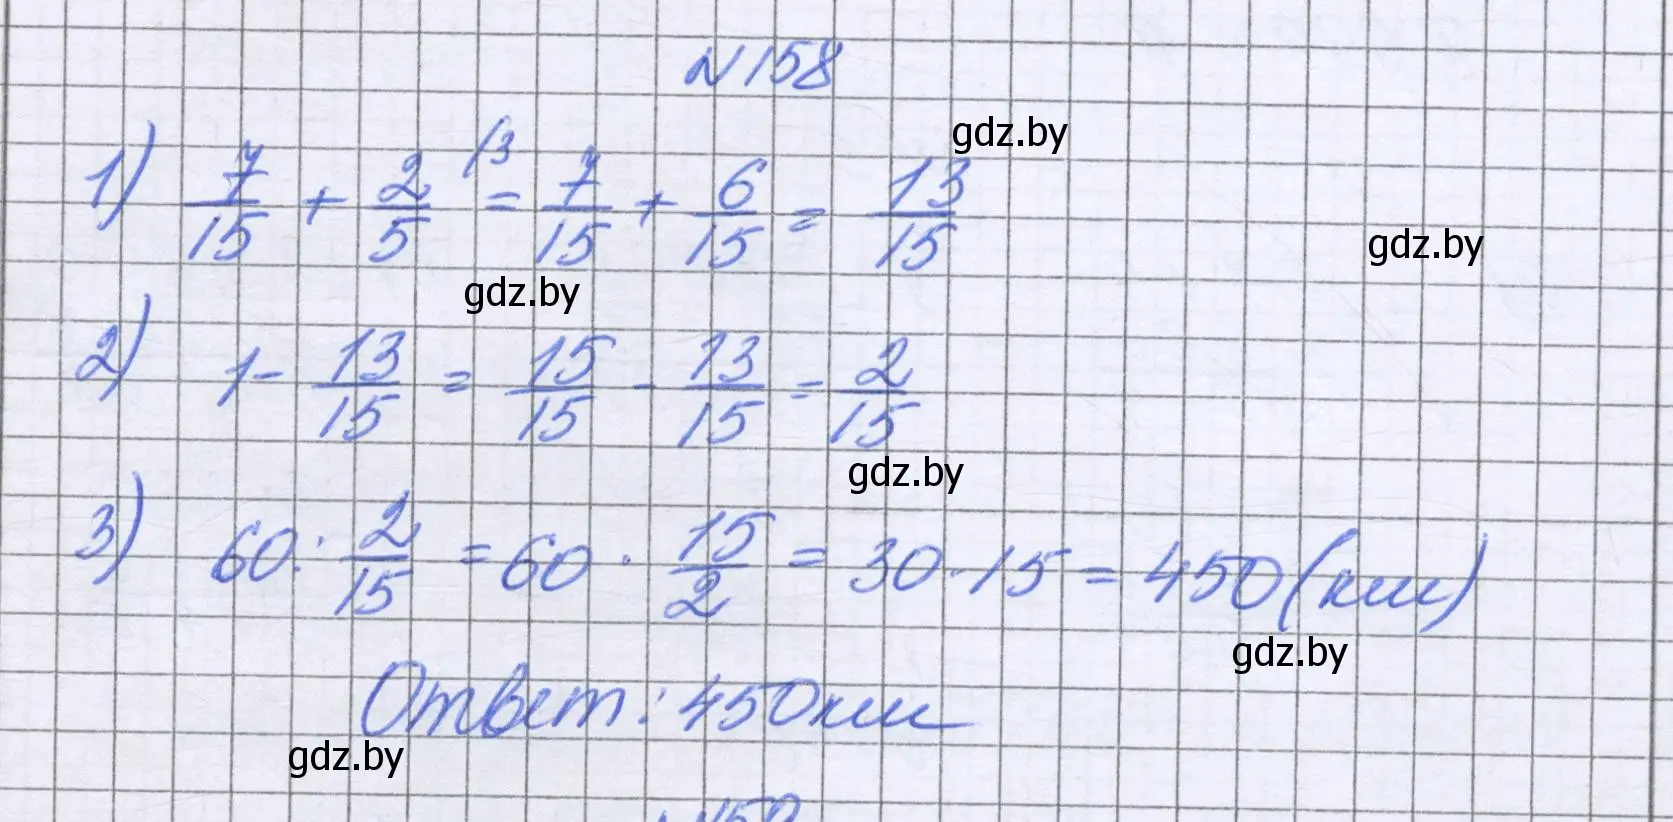 №158
gdz.by
1) 7/15 + 2/5 /3 = 7/15 + 6/15 = 13/15
gdz.by
gdz.by
2) 1 - 13/15 = 15/15 - 13/15 = 2/15
gdz.by
3) 60 : 2/15 = 60 · 15/2 = 30 · 15 = 450 (км)
gdz.by
Ответ: 450 км
gdz.by
№159